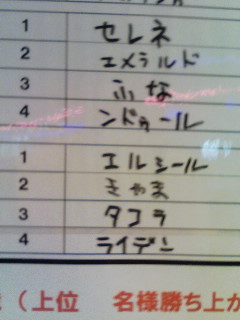 1 セレネ
2 エメラルド
3 ふな
4 ンドゥール
1 エルシール
2 きやま
3 タコラ
4 ライデン
（上位 名様勝ち上が